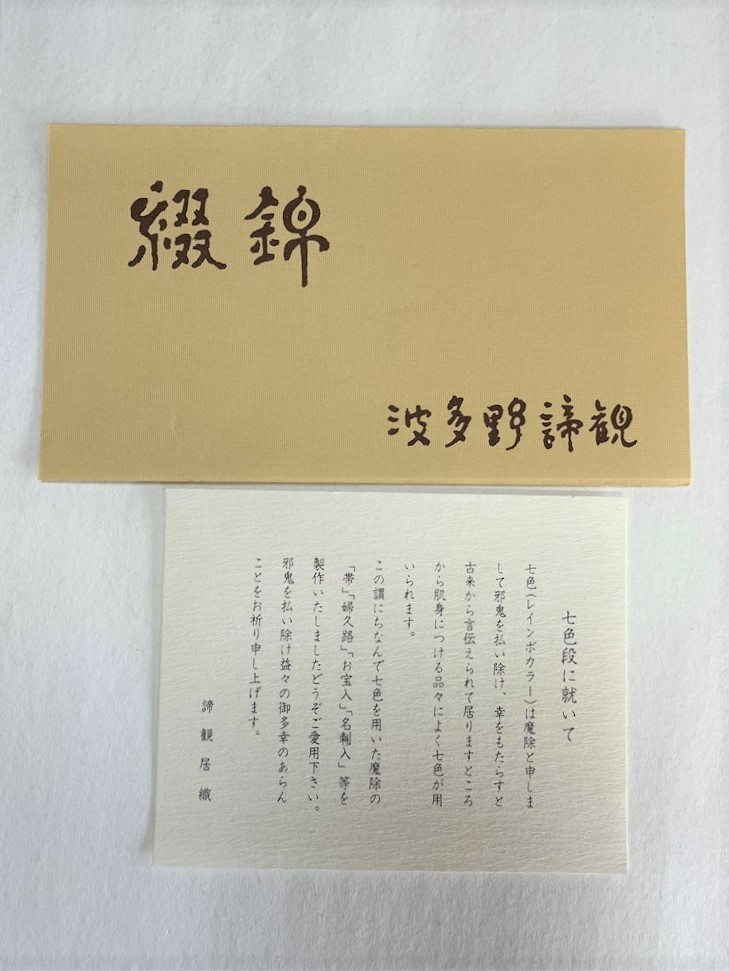 綴錦
波多野諦観
七色段に就いて
七色(レインボカラー)は魔除と申しま
して邪鬼を払い除け、幸をもたらすと
古来から言伝えられて居りますところ
から肌身につける品々によく七色が用
いられます。
この謂にちなんで七色を用いた魔除の
「帯」「婦久路」「お宝入」「名刺入」等を
製作いたしましたどうぞご愛用下さい。
邪鬼を払い除け益々の御多幸のあらん
ことをお祈り申し上げます。
諦観居織